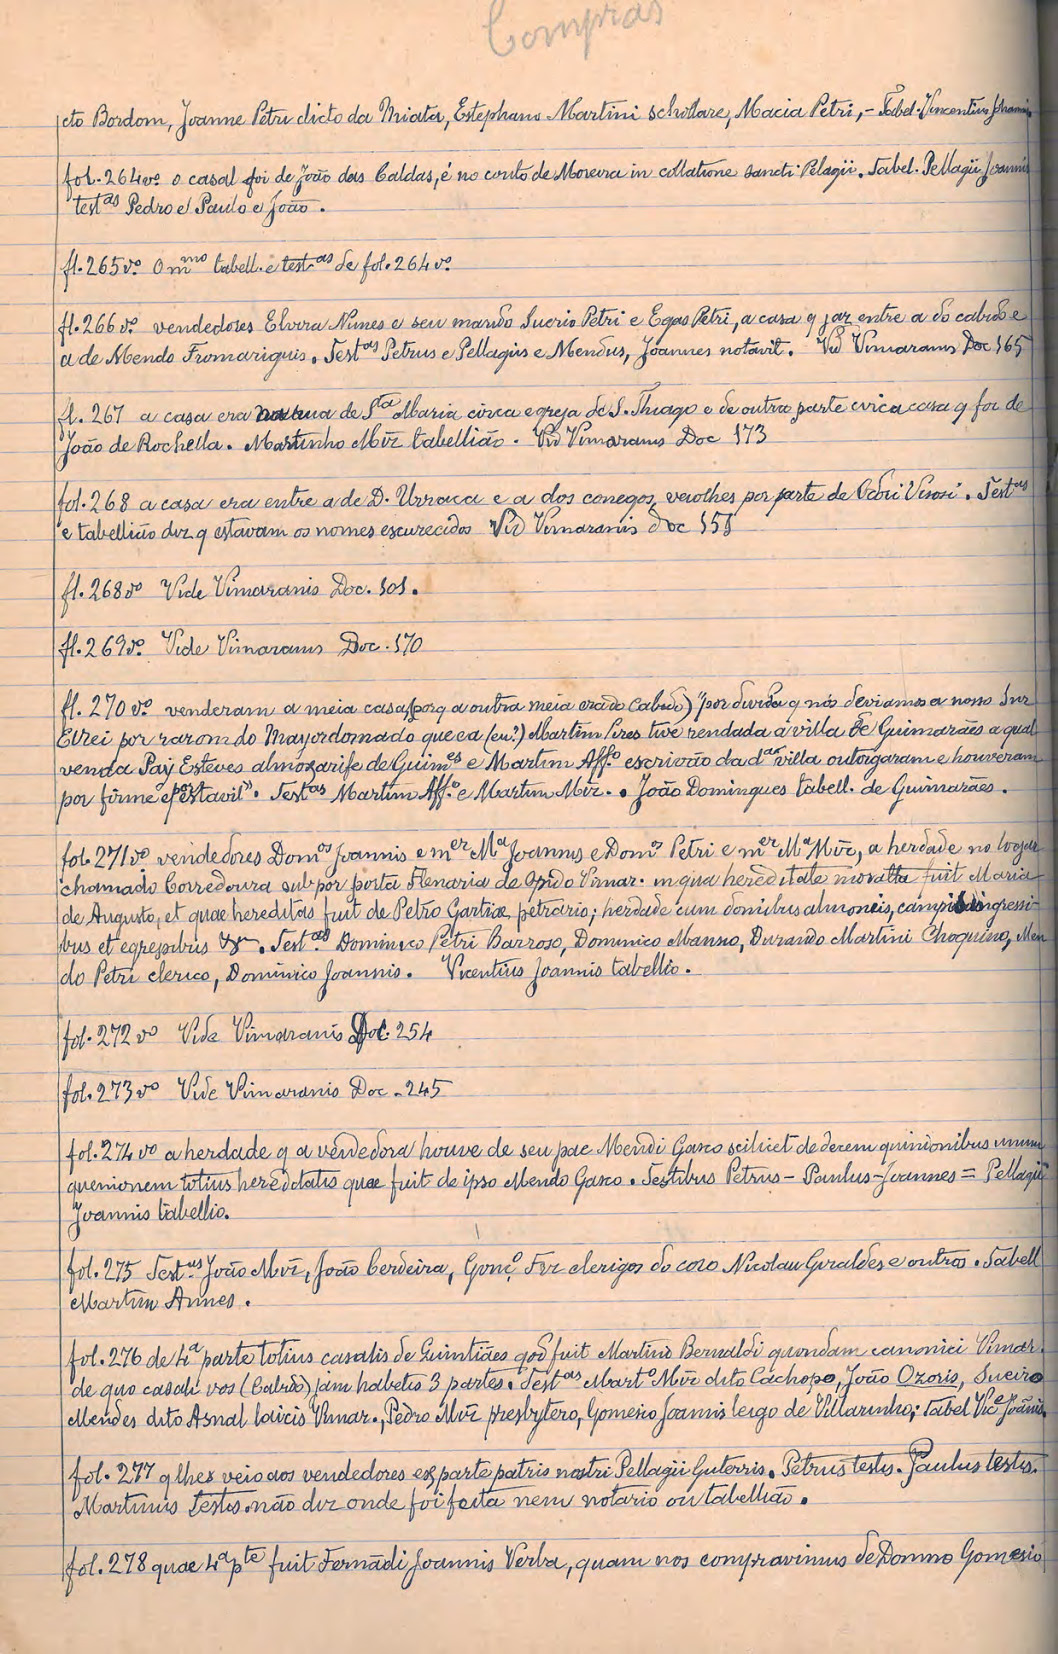 Compras
cto Bordom, Joanne Petri dicto da Miata, Estephano Martini scholare, Macia Petri, - Tabel. Vincentius Johannis
fol. 264 vº o casal foi de João das Caldas, é no couto de Moreira in collatione sancti Pelagii. Tabel. Pellagii Joannis
testas Pedro e Paulo e João.
fl. 265 vº. O mmo tabell. e testas de fol. 264 vº.
fl. 266 vº. vendedores Elvira Nunes e seu marido Suerio Petri e Egas Petri, a casa q jaz entre a do cabido e
a de Mendo Fromariguis. Testas Petrus e Pellagius e Mendus, Joannes notavit. Vid Vimaranis Doc 165
fl. 267 a casa era na rua de Sta Maria circa egreja de S. Thiago e de outra parte circa casa q foi de
João de Rochella. Martinho Miz tabellião. Vid Vimaranis Doc 173
fol. 268 a casa era entre a de D. Urraca e a dos conegos, veiolhes por parte de Odori Virosi. Testas
e tabellião diz q estavam os nomes escurecidos Vid Vimaranis doc 151
fl. 268 vº Vide Vimaranis Doc. 101.
fl. 269 vº. Vide Vimaranis Doc. 170
fl. 270 vº. venderam a meia casa, (porq a outra meia era do Cabido) "por divida q nós deviamos a nosso Snr
Elrei por razom do Mayordomado que ea (eu?) Martim Pires tive rendada a villa de Guimarães a qual
venda Pay Esteves almoxarife de Guimes e Martim Affº escrivão da da villa outorgaram e houveram
por firme e por estavil". Testas Martim Affº e Martim Miz. . João Domingues tabell. de Guimarães.
fol. 271 vº vendedores Domos Joannis e mer Ma Joannis e Domos Petri e mer Ma Miz, a herdade no logar
chamado Corredoura sub por porta Flenaria de Opido Vimar. in qua hereditate moratta fuit Maria
de Augusto, et quae hereditas fuit de Petro Gartiae, petrario; herdade cum domibus almoneis, campis ingressi-
bus et egressibus &. Testas Dominico Petri Barroso, Dominico Manso, Durando Martini Choquino, Men
do Petri clerico, Dominico Joannis. Vicentius Joannis tabellio.
fol. 272 vº Vide Vimaranis Doc. 254
fol. 273 vº Vide Vimaranis Doc. 245
fol. 274 vº a herdade q a vendedora houve de seu pae Mendi Gasco scilicet de decem quinionibus unum
quenionem totius hereditatis quae fuit de ipso Mendo Gasco. Testibus Petrus - Paulus - Joannes = Pellagii
Joannis tabellio.
fol. 275 Testas João Miz, João Cerdeira, Gomº. Frz clerigos do coro Nicolau Giraldes e outros. Tabell
Martim Annes.
fol. 276 de 4ª parte totius casalis de Guintiães qod fuit Martino Bernaldi quondam canonici Vimar.
de quo casali vos (Cabido) jam habetis 3 partes. Testas Martº Miz dito Cachopo, João Ozoris, Sueiro
Mendes dito Asnal laicis Vimar., Pedro Miz presbytero, Gomesio Joannis leigo de Villarinho; Tabel Vice Joãnis
fol. 277 q lhes veio aos vendedores ex parte patris nostri Pellagii Guterris. Petrus testis. Paulus testis.
Martinus Testis. não diz onde foi feita nem notario ou tabellião.
fol. 278 quae 4ª pte fuit Fernãdi Joannis Verba, quam nos compravimus de Domno Gomesio